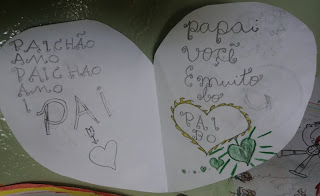 PAICHÃO
AMO
PAICHAO
AMO
I
PAI
papai
você
E muito
bo
PAI
DO